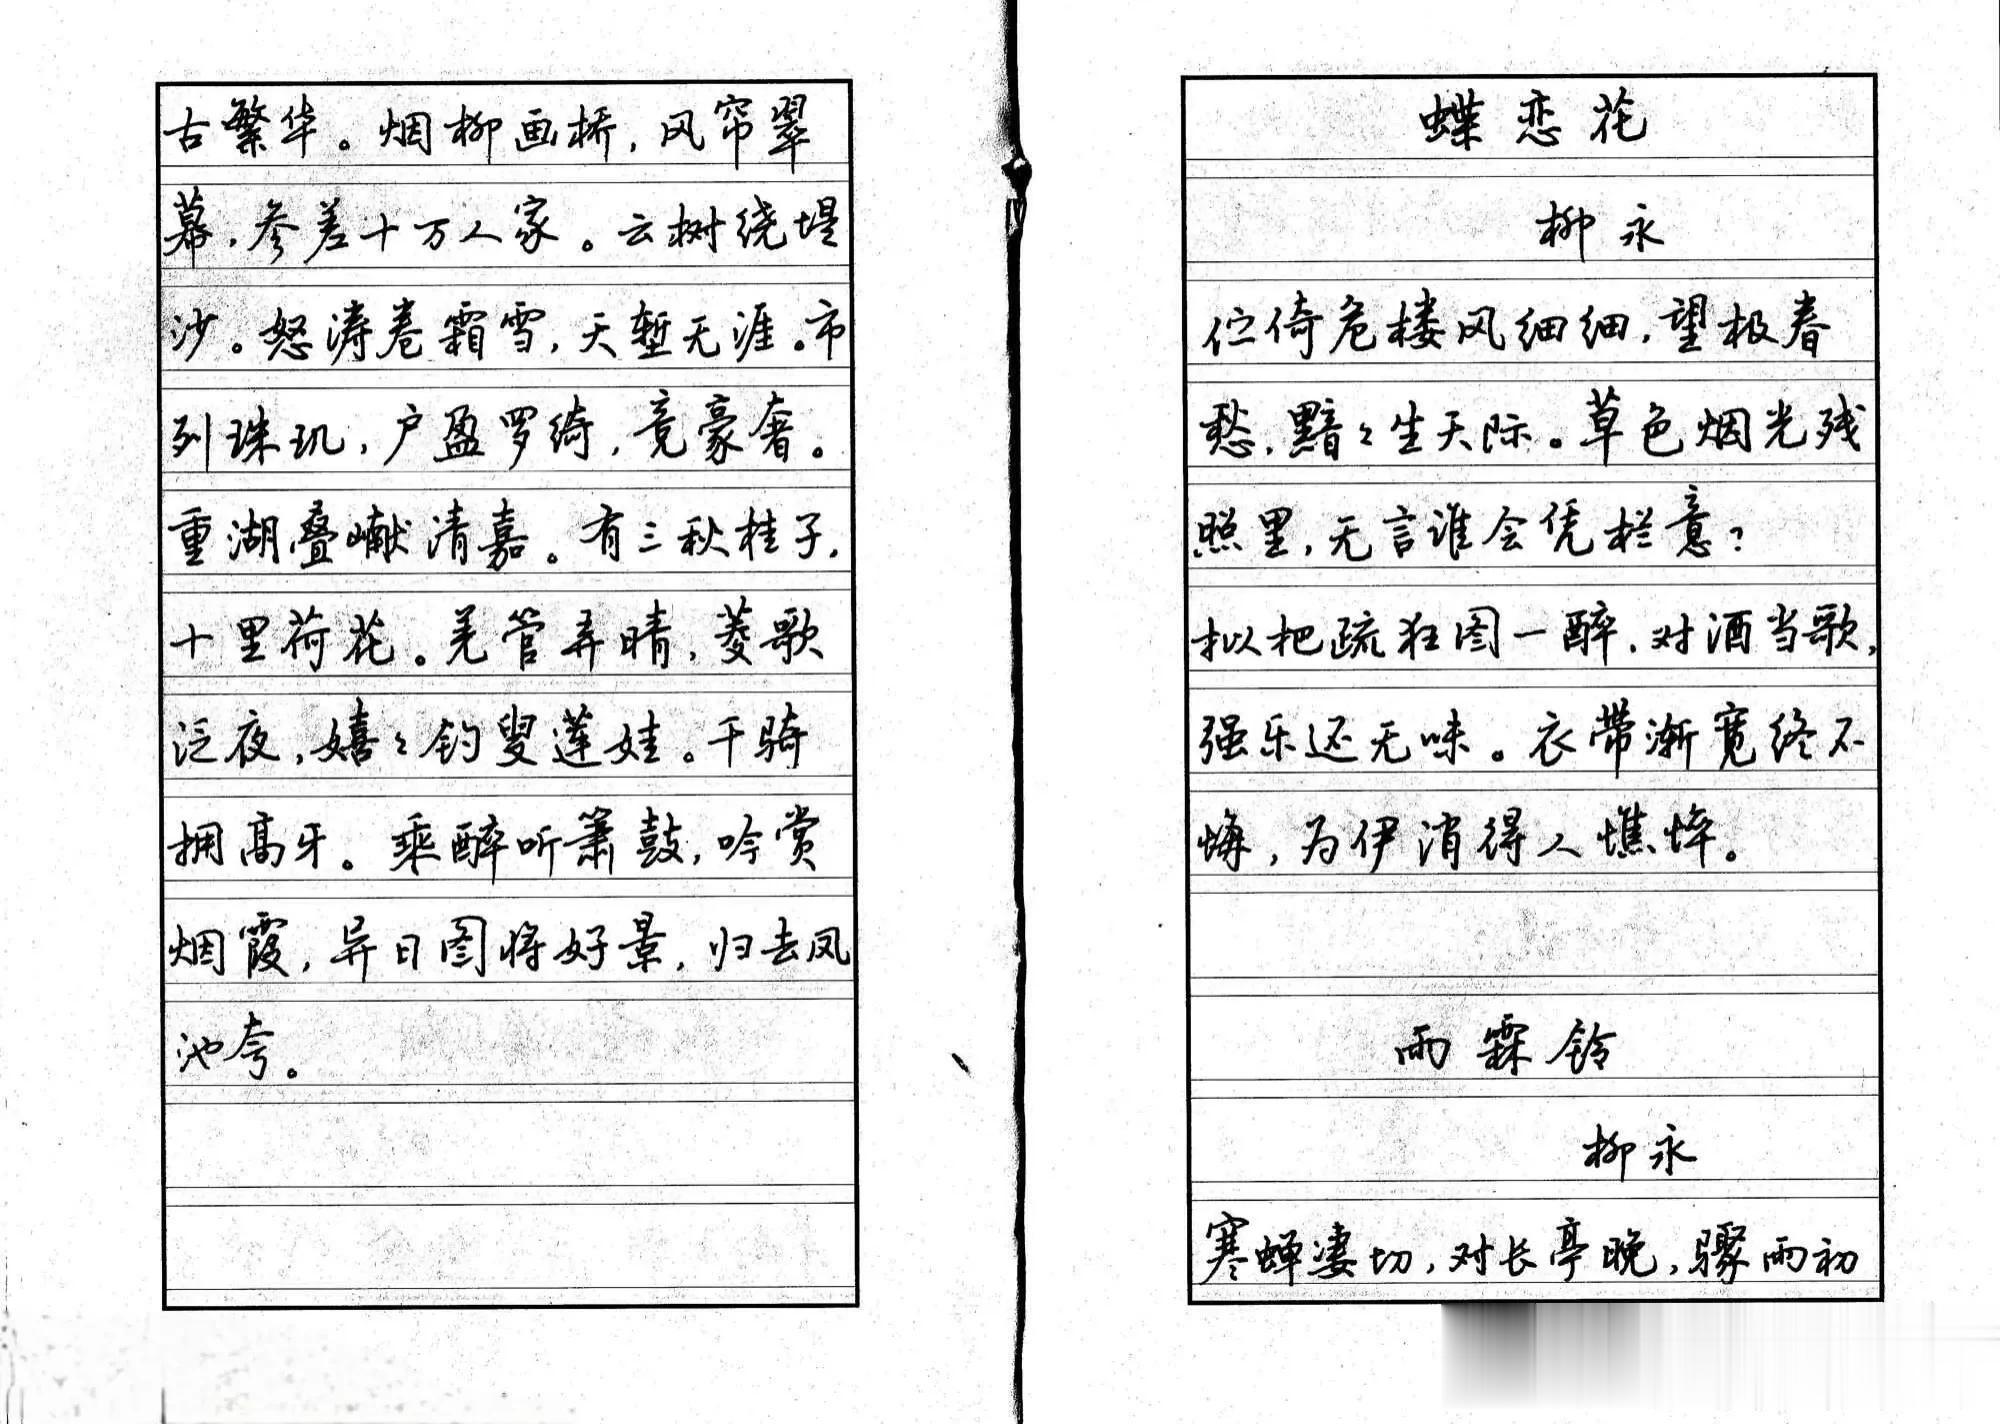 古繁华。烟柳画桥,风帘翠
幕,参差十万人家。云树绕堤
沙。怒涛卷霜雪,天堑无涯。市
列珠玑,户盈罗绮,竟豪奢。
重湖叠巘清嘉。有三秋桂子,
十里荷花。羌管弄晴,菱歌
泛夜,嬉々钓叟莲娃。千骑
拥高牙。乘醉听箫鼓,吟赏
烟霞,异日图将好景,归去凤
池夸。
蝶恋花
柳永
伫倚危楼风细细,望极春
愁,黯々生天际。草色烟光残
照里,无言谁会凭栏意?
拟把疏狂图一醉,对酒当歌,
强乐还无味。衣带渐宽终不
悔,为伊消得人憔悴。
雨霖铃
柳永
寒蝉凄切,对长亭晚,骤雨初